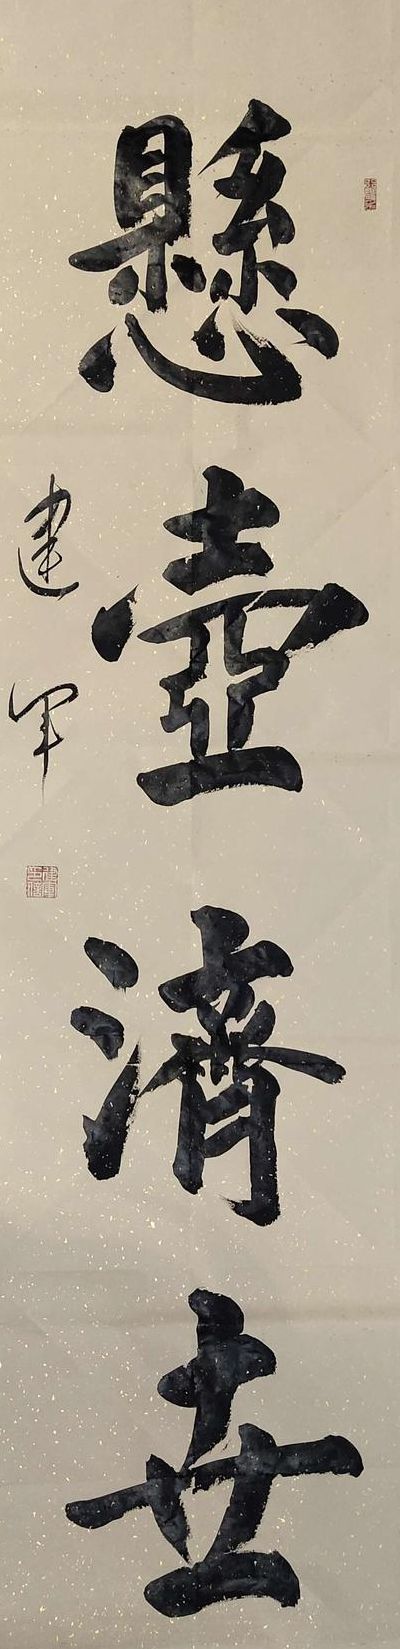 懸壺濟世
建軍